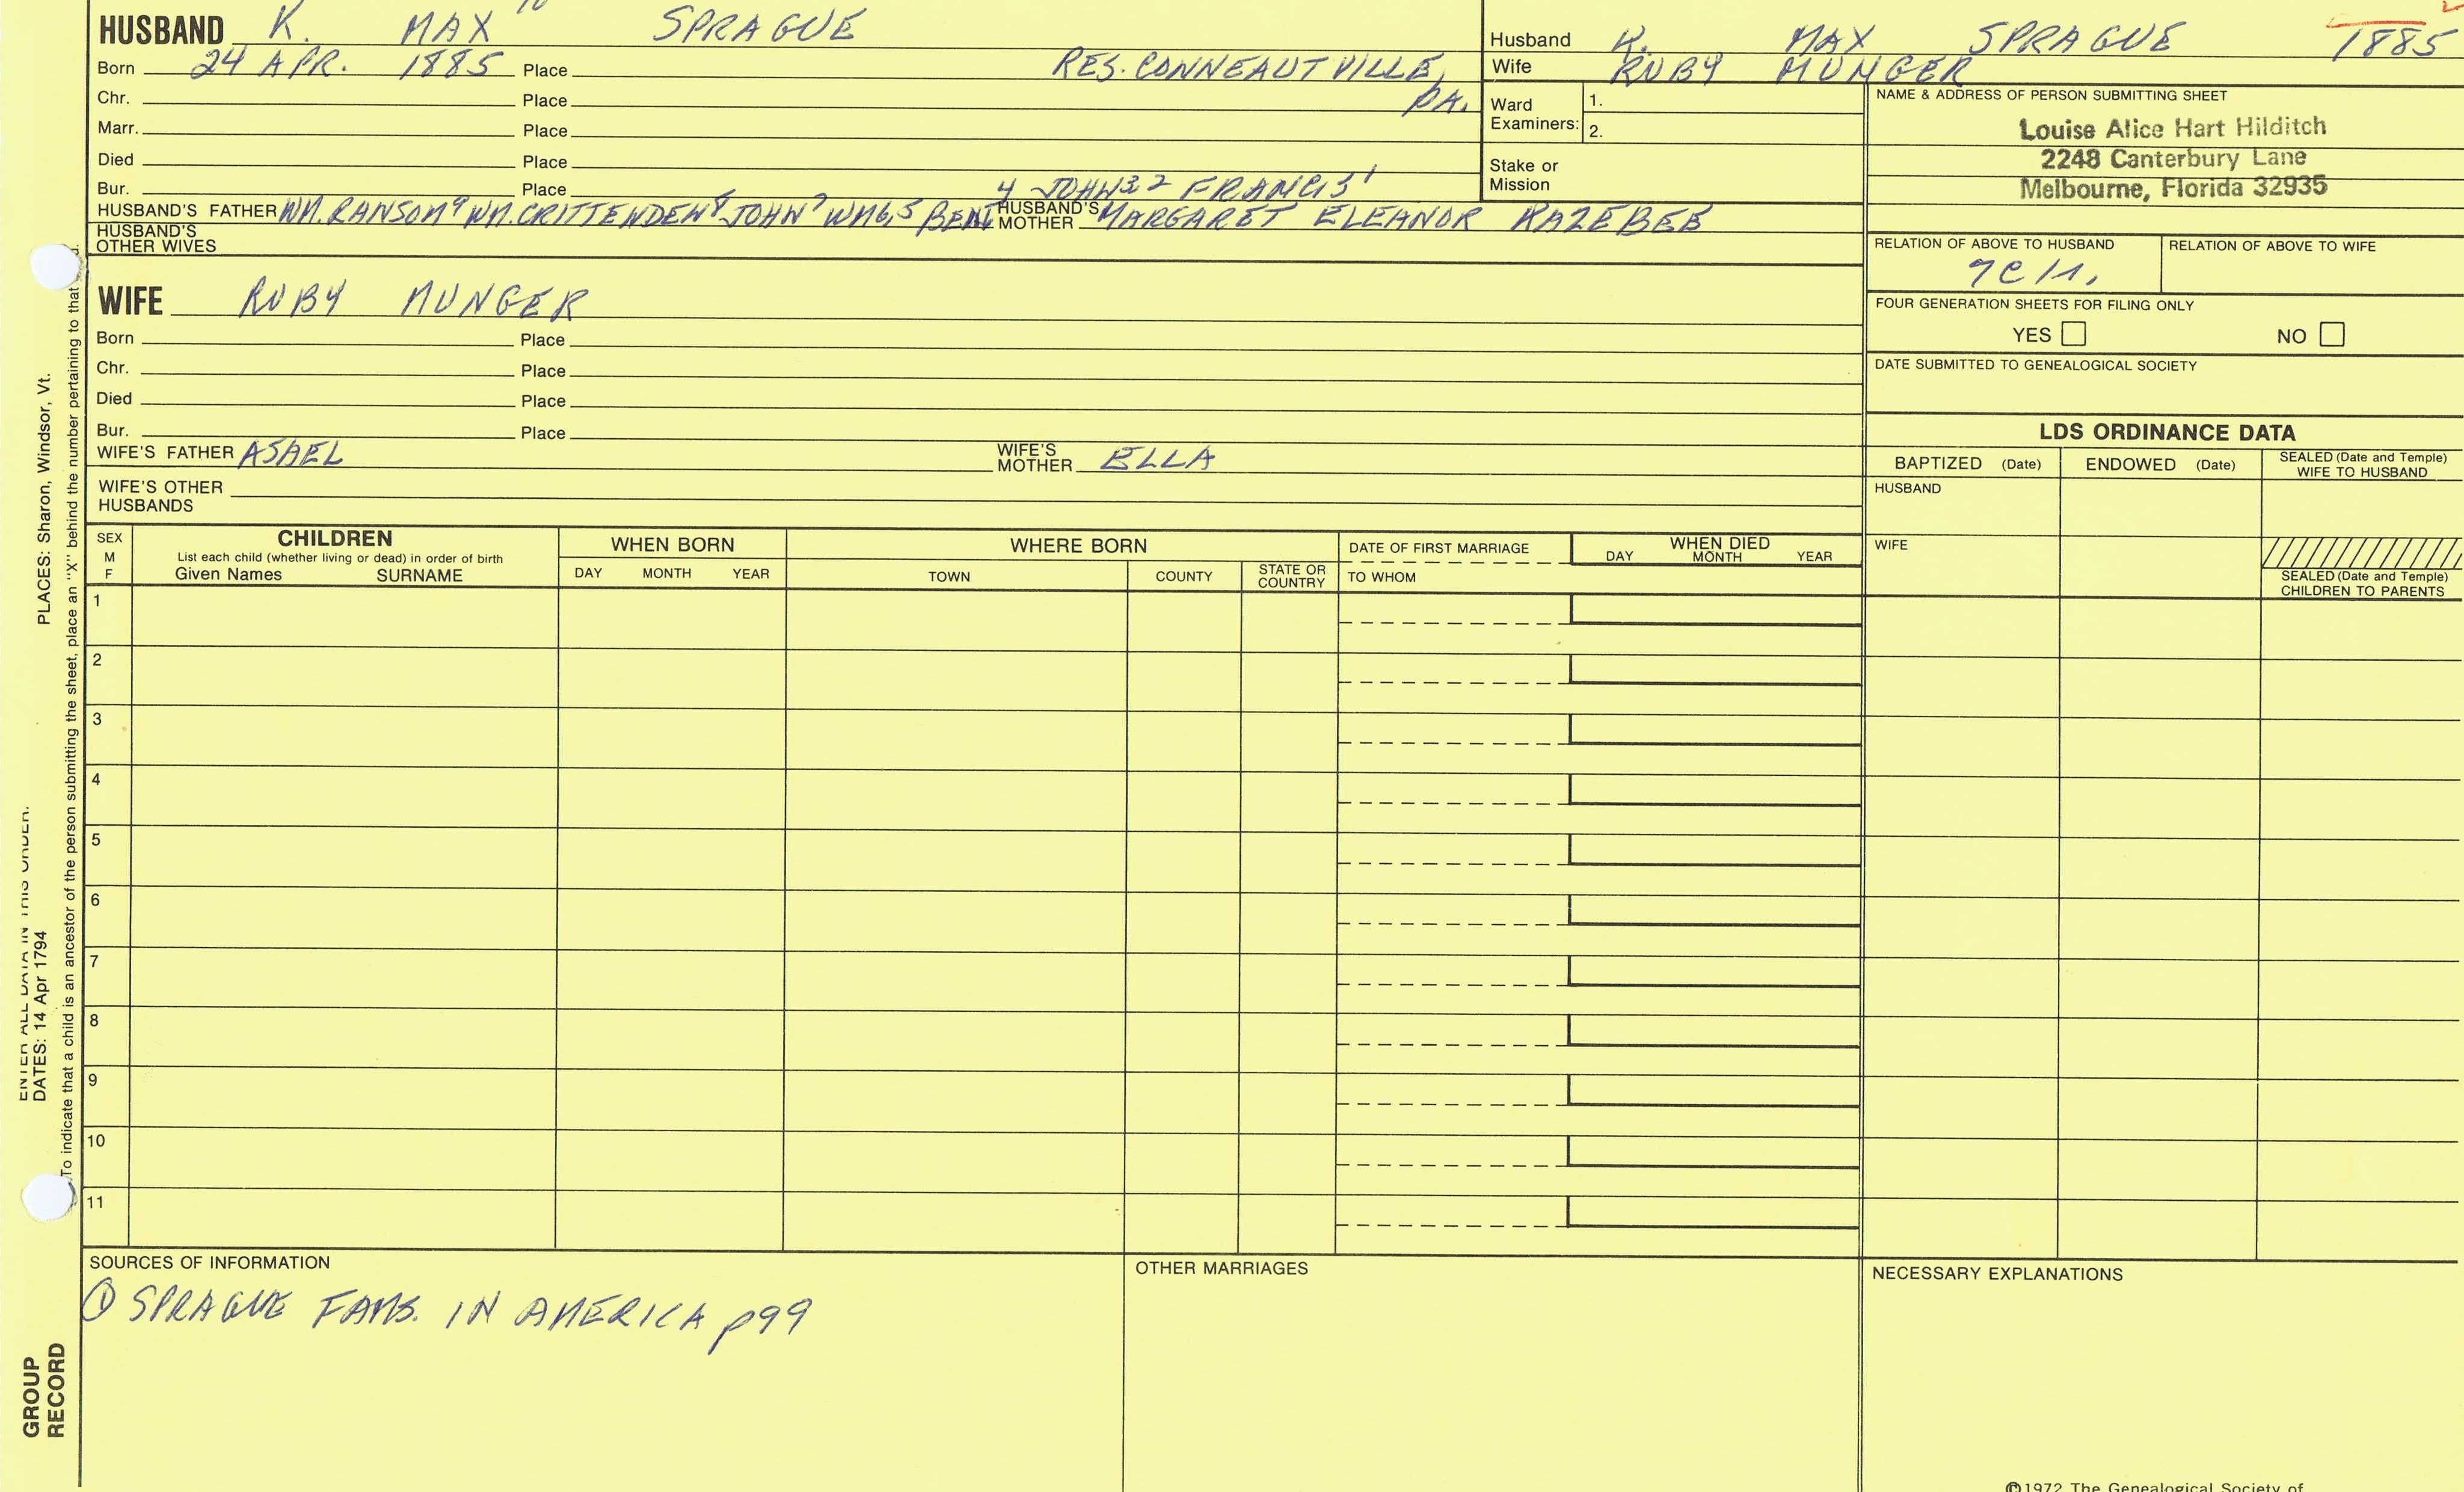 HUSBAND K. MAX 10 SPRAGUE
Born 24 APR. 1885 Place RES. CONNEAUTVILLE, PA.
Chr. Place
Marr. Place
Died Place
Bur. Place 4 JOHN 3 2 FRANCIS 1
HUSBAND'S FATHER WM. RANSOM 9 WM. CRITTENDEN 8 JOHN 7 WM 6,5 BENJ HUSBAND'S MOTHER MARGARET ELEANOR RAZEBEE
HUSBAND'S OTHER WIVES
Husband K. MAX SPRAGUE 1885
Wife RUBY MUNGER
Ward Examiners: 1.
2.
Stake or Mission
NAME & ADDRESS OF PERSON SUBMITTING SHEET
Louise Alice Hart Hilditch
2248 Canterbury Lane
Melbourne, Florida 32935
RELATION OF ABOVE TO HUSBAND RELATION OF ABOVE TO WIFE
FOUR GENERATION SHEETS FOR FILING ONLY
YES NO
DATE SUBMITTED TO GENEALOGICAL SOCIETY
WIFE RUBY MUNGER
Born Place
Chr. Place
Died Place
Bur. Place
WIFE'S FATHER ASAEL WIFE'S MOTHER ELLA
WIFE'S OTHER HUSBANDS
LDS ORDINANCE DATA
BAPTIZED (Date) ENDOWED (Date) SEALED (Date and Temple) WIFE TO HUSBAND
HUSBAND
WIFE
SEALED (Date and Temple) CHILDREN TO PARENTS
SEX M F
CHILDREN
List each child (whether living or dead) in order of birth
Given Names SURNAME
WHEN BORN
DAY MONTH YEAR
WHERE BORN
TOWN COUNTY STATE OR COUNTRY
DATE OF FIRST MARRIAGE
TO WHOM
WHEN DIED
DAY MONTH YEAR
1
2
3
4
5
6
7
8
9
10
11
SOURCES OF INFORMATION
① SPRAGUE FAMS. IN AMERICA p99
OTHER MARRIAGES
NECESSARY EXPLANATIONS
©1972 The Genealogical Society of
ENTER ALL DATA IN THIS ORDER.
DATES: 14 Apr 1794
PLACES: Sharon, Windsor, Vt.
To indicate that a child is an ancestor of the person submitting the sheet, place an "X" behind the number pertaining to that
GROUP
RECORD